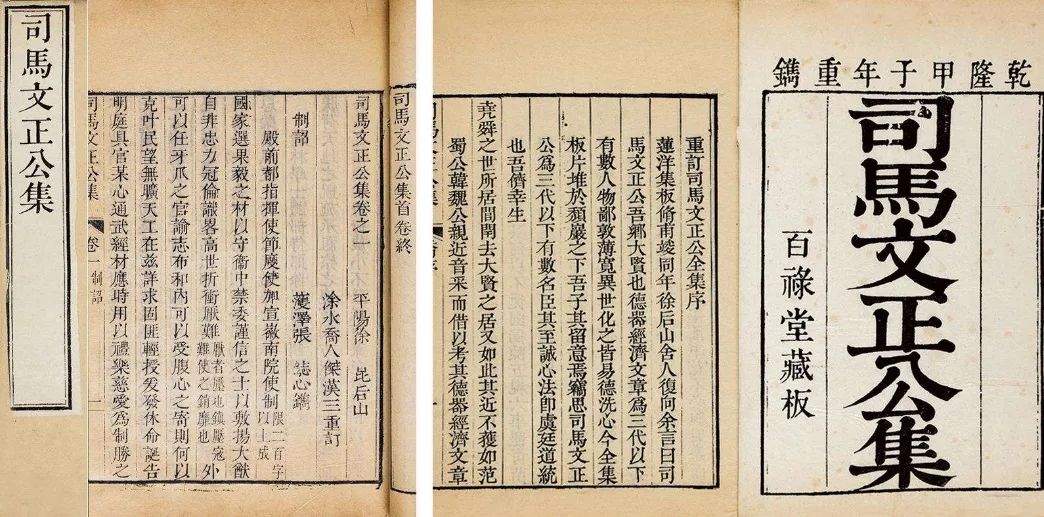 司馬文正公集
司馬文正公集首 卷終
司馬文正公集卷之一
平陽徐 昆后山
涂水喬人傑漢三重訂
蓌澤張 誌心鐫
制詔
殿前都指揮使節度使加宣徽南院使制 限二百字以上成
國家選果毅之材以守衞中禁委謹信之士以敷揚大猷
自非忠力冠倫識畧高世折衝厭難 厭者壓也鎮壓寇難使之銷靡也 外
可以任牙爪之官諭志布和內可以受腹心之寄則何以
克叶民望無曠天工在兹詳求固匪輕授爰發休命誕告
明庭具官某心通武經材應時用以禮樂慈愛為制勝之
司馬文正公集 卷一 制詔 一
乾隆甲子年重鐫
司馬文正公集
百祿堂藏板
重訂司馬文正公全集序
蓮洋集板脩甫竣同年徐后山舍人復向余言曰司
馬文正公吾鄉大賢也德器經濟文章爲三代以下
有數人物鄙敦薄寬異世化之皆易德洗心今全集
板片堆於頹巖之下吾子其留意焉竊思司馬文正
公爲三代以下有數名臣其至誠心法卽虞廷道統
也吾儕幸生
堯舜之世所居間閈去大賢之居又如此其近不獲如范
蜀公韓魏公親近音采而借以考其德器經濟文章